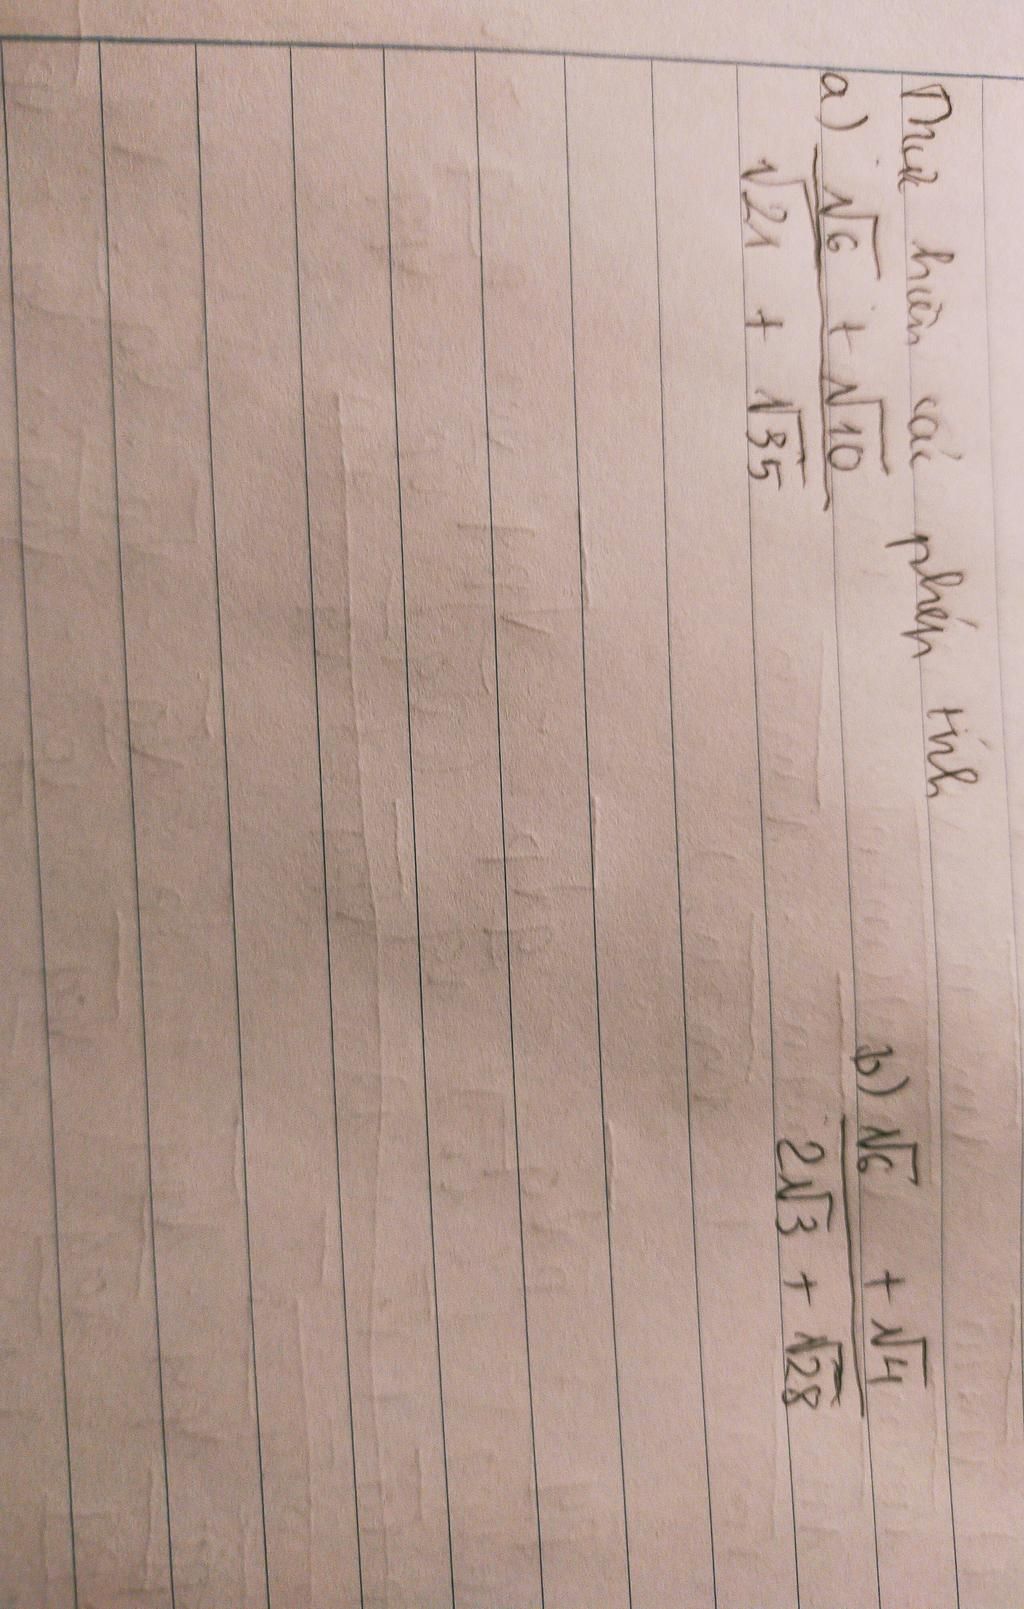 Thực hiện các phép tính
a) \frac{\sqrt{6} + \sqrt{10}}{\sqrt{21} + \sqrt{35}}
b) \frac{\sqrt{6} + \sqrt{4}}{2\sqrt{3} + \sqrt{28}}